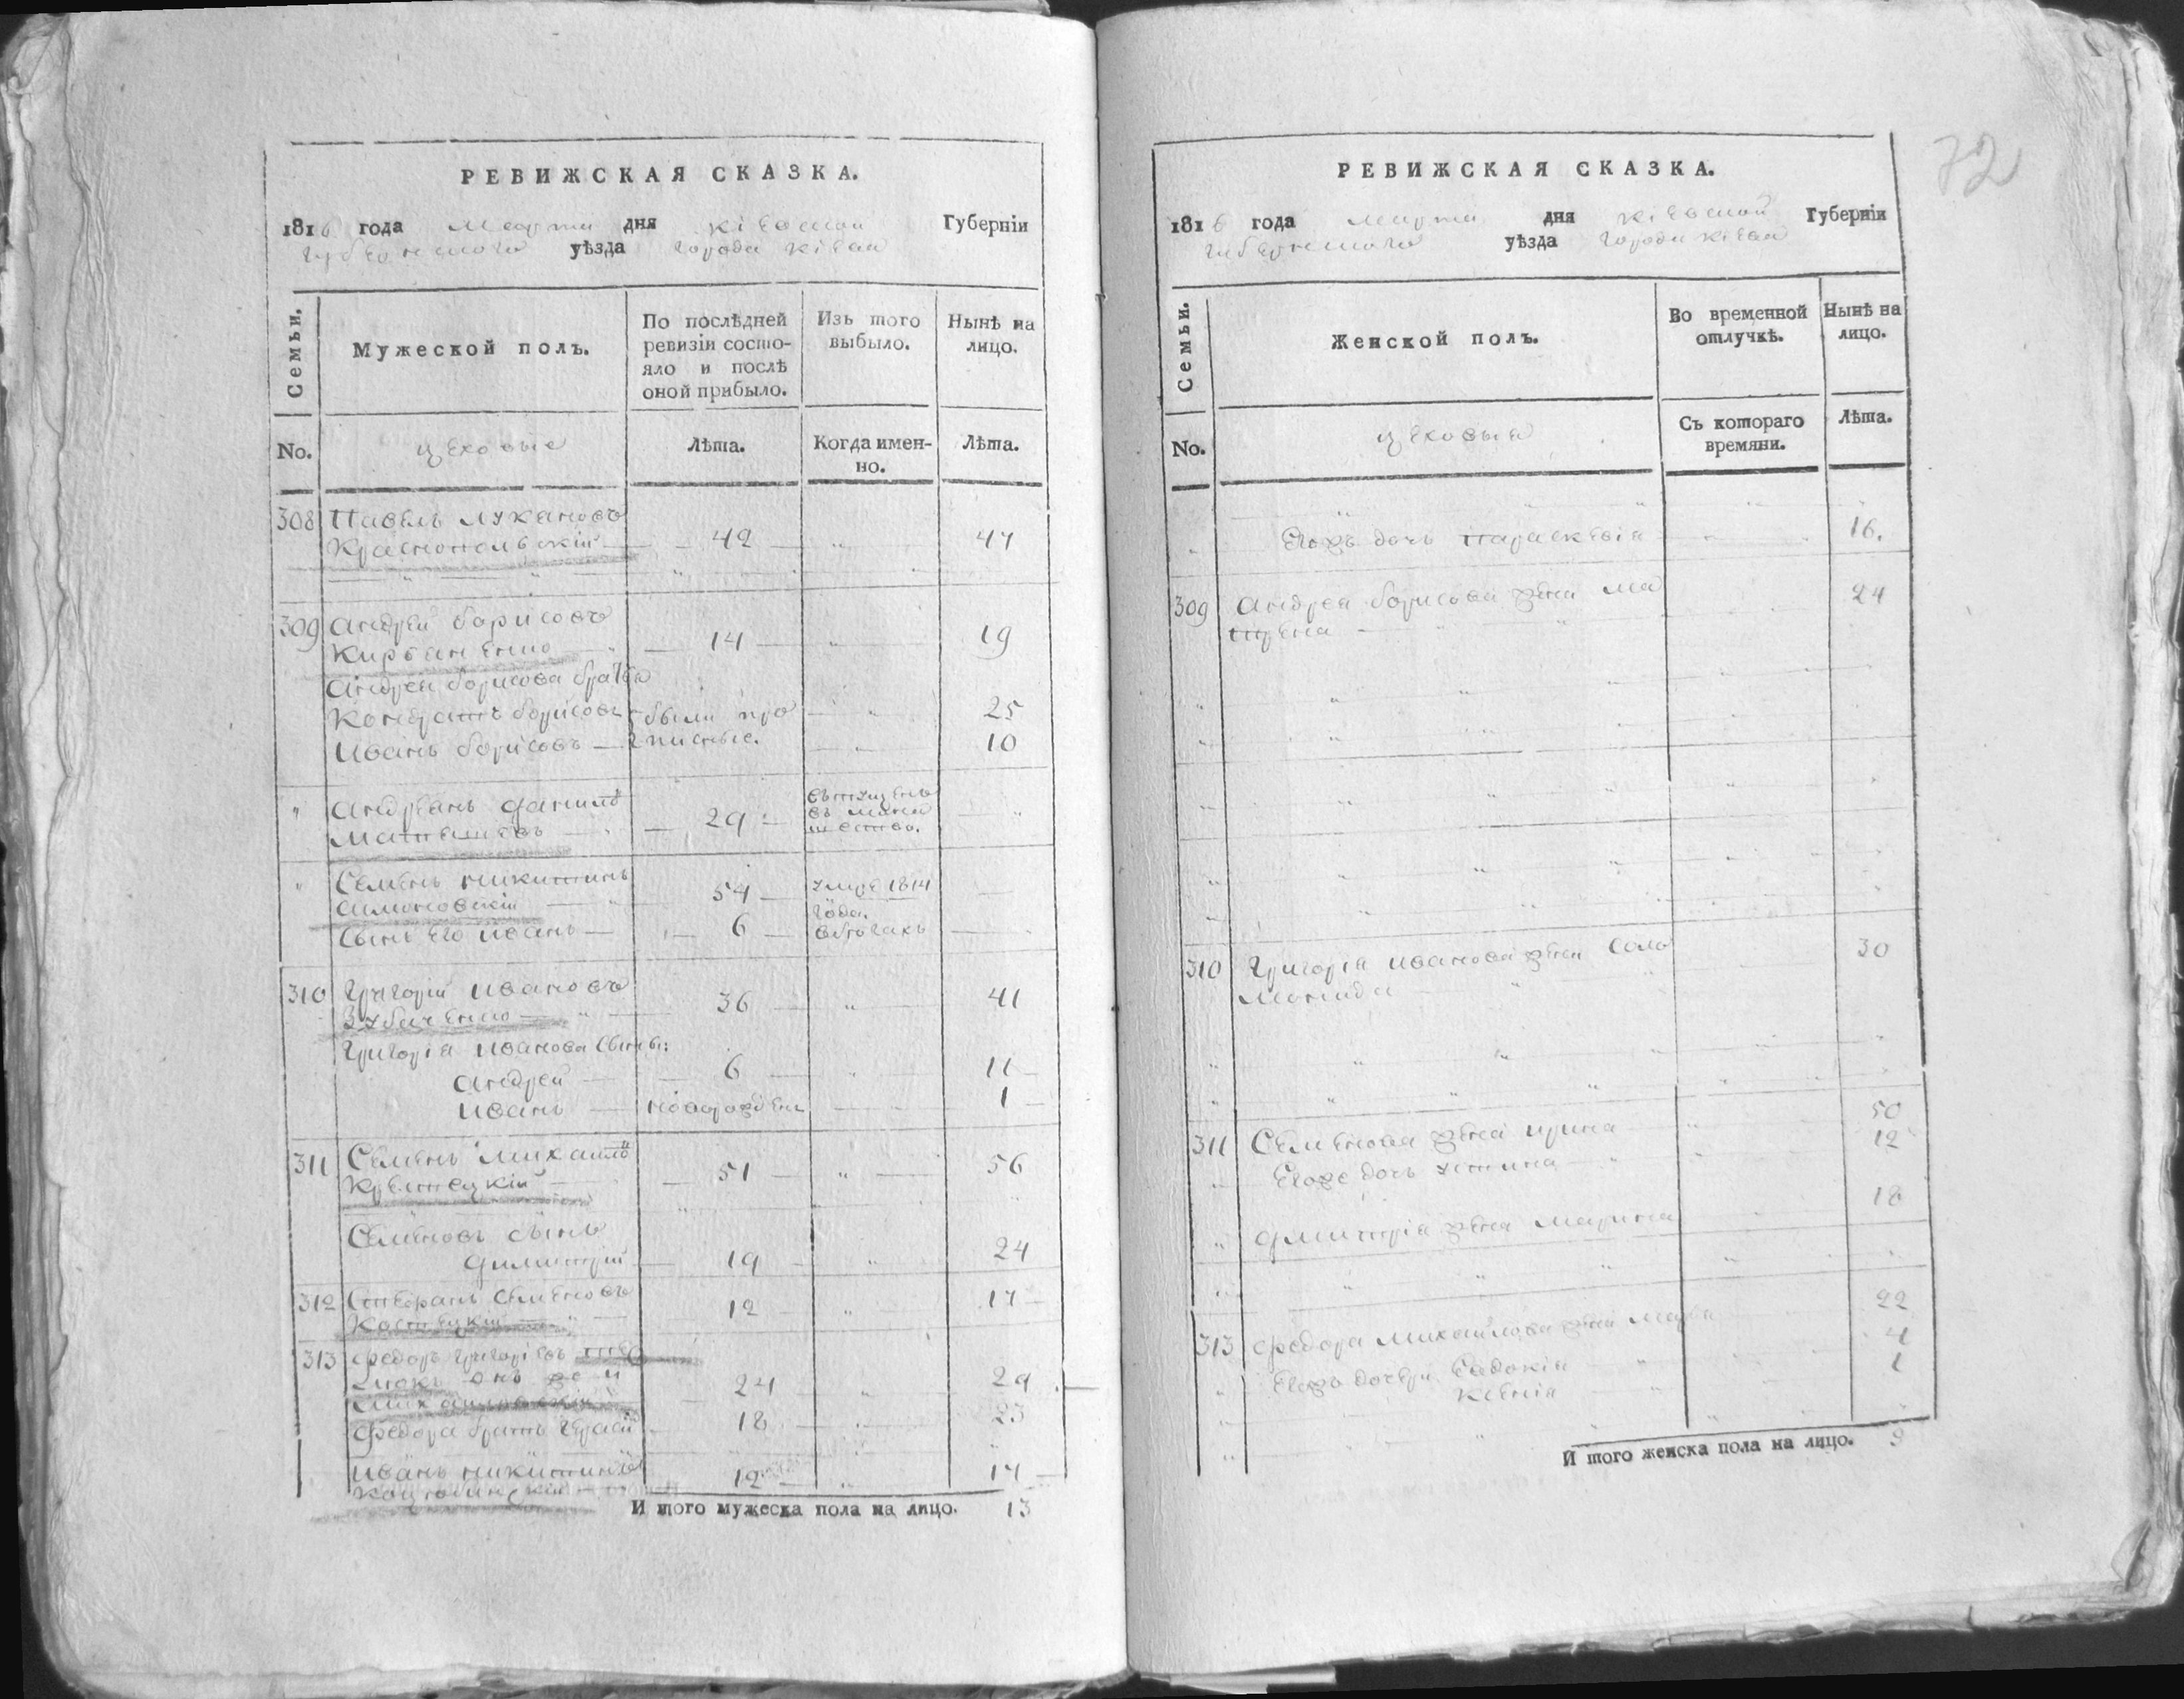 РЕВИЖСКАЯ СКАЗКА.
1816 года Марта дня Кіевской Губерніи
Губернского уѣзда города Кіева
Семьи.
Мужеской полъ.
По послѣдней ревизіи состо-
яло и послѣ
оной прибыло.
Изъ того
выбыло.
Нынѣ на
лицо.
No.
цеховые
Лѣта.
Когда имен-
но.
Лѣта.
308 Павелъ Лукановъ
Краснопольскій 42 47
309 Андрей Борисовъ
14 19
Андрея Борисова братья
Кондратъ Борисовъ были про 25
Иванъ Борисовъ писные. 10
Андреянъ Данилов
29
Семенъ Никитинъ 54 умре 1814
года.
Сынъ его Иванъ 6 в бегахъ
310 Григорій Ивановъ
Зубаченко 36 41
Григорія Иванова сыны:
Андрей 6 11
Иванъ новорожден 1
311 Семенъ Михайлов
51 56
Семеновъ сынъ
Димитрій 19 24
312 Стефанъ Семеновъ
12 17
313 Федоръ Григоріевъ
онъ же и
24 29
Федора братъ Герасим 18 23
Иванъ Никитинъ
12 17
И того мужеска пола на лицо. 13
72
РЕВИЖСКАЯ СКАЗКА.
1816 года Марта дня Кіевской Губерніи
Губернского уѣзда города Кіева
Семьи.
Женской полъ.
Во временной
отлучкѣ.
Нынѣ на
лицо.
No.
цеховыя
Съ котораго
времяни.
Лѣта.
Егожъ дочь Параскевія 16.
309 Андрея Борисова жена Ма 24
трена
310 Григорія Иванова жена Соло 30
монида
311 Семенова жена Ирина 50
Егоже дочь Устина 12
Дмитрія жена Марина 18
313 Федора Михайлова жена Марья 22
Егожъ дочери Евдокія 4
Ксенія 1
И того женска пола на лицо. 9